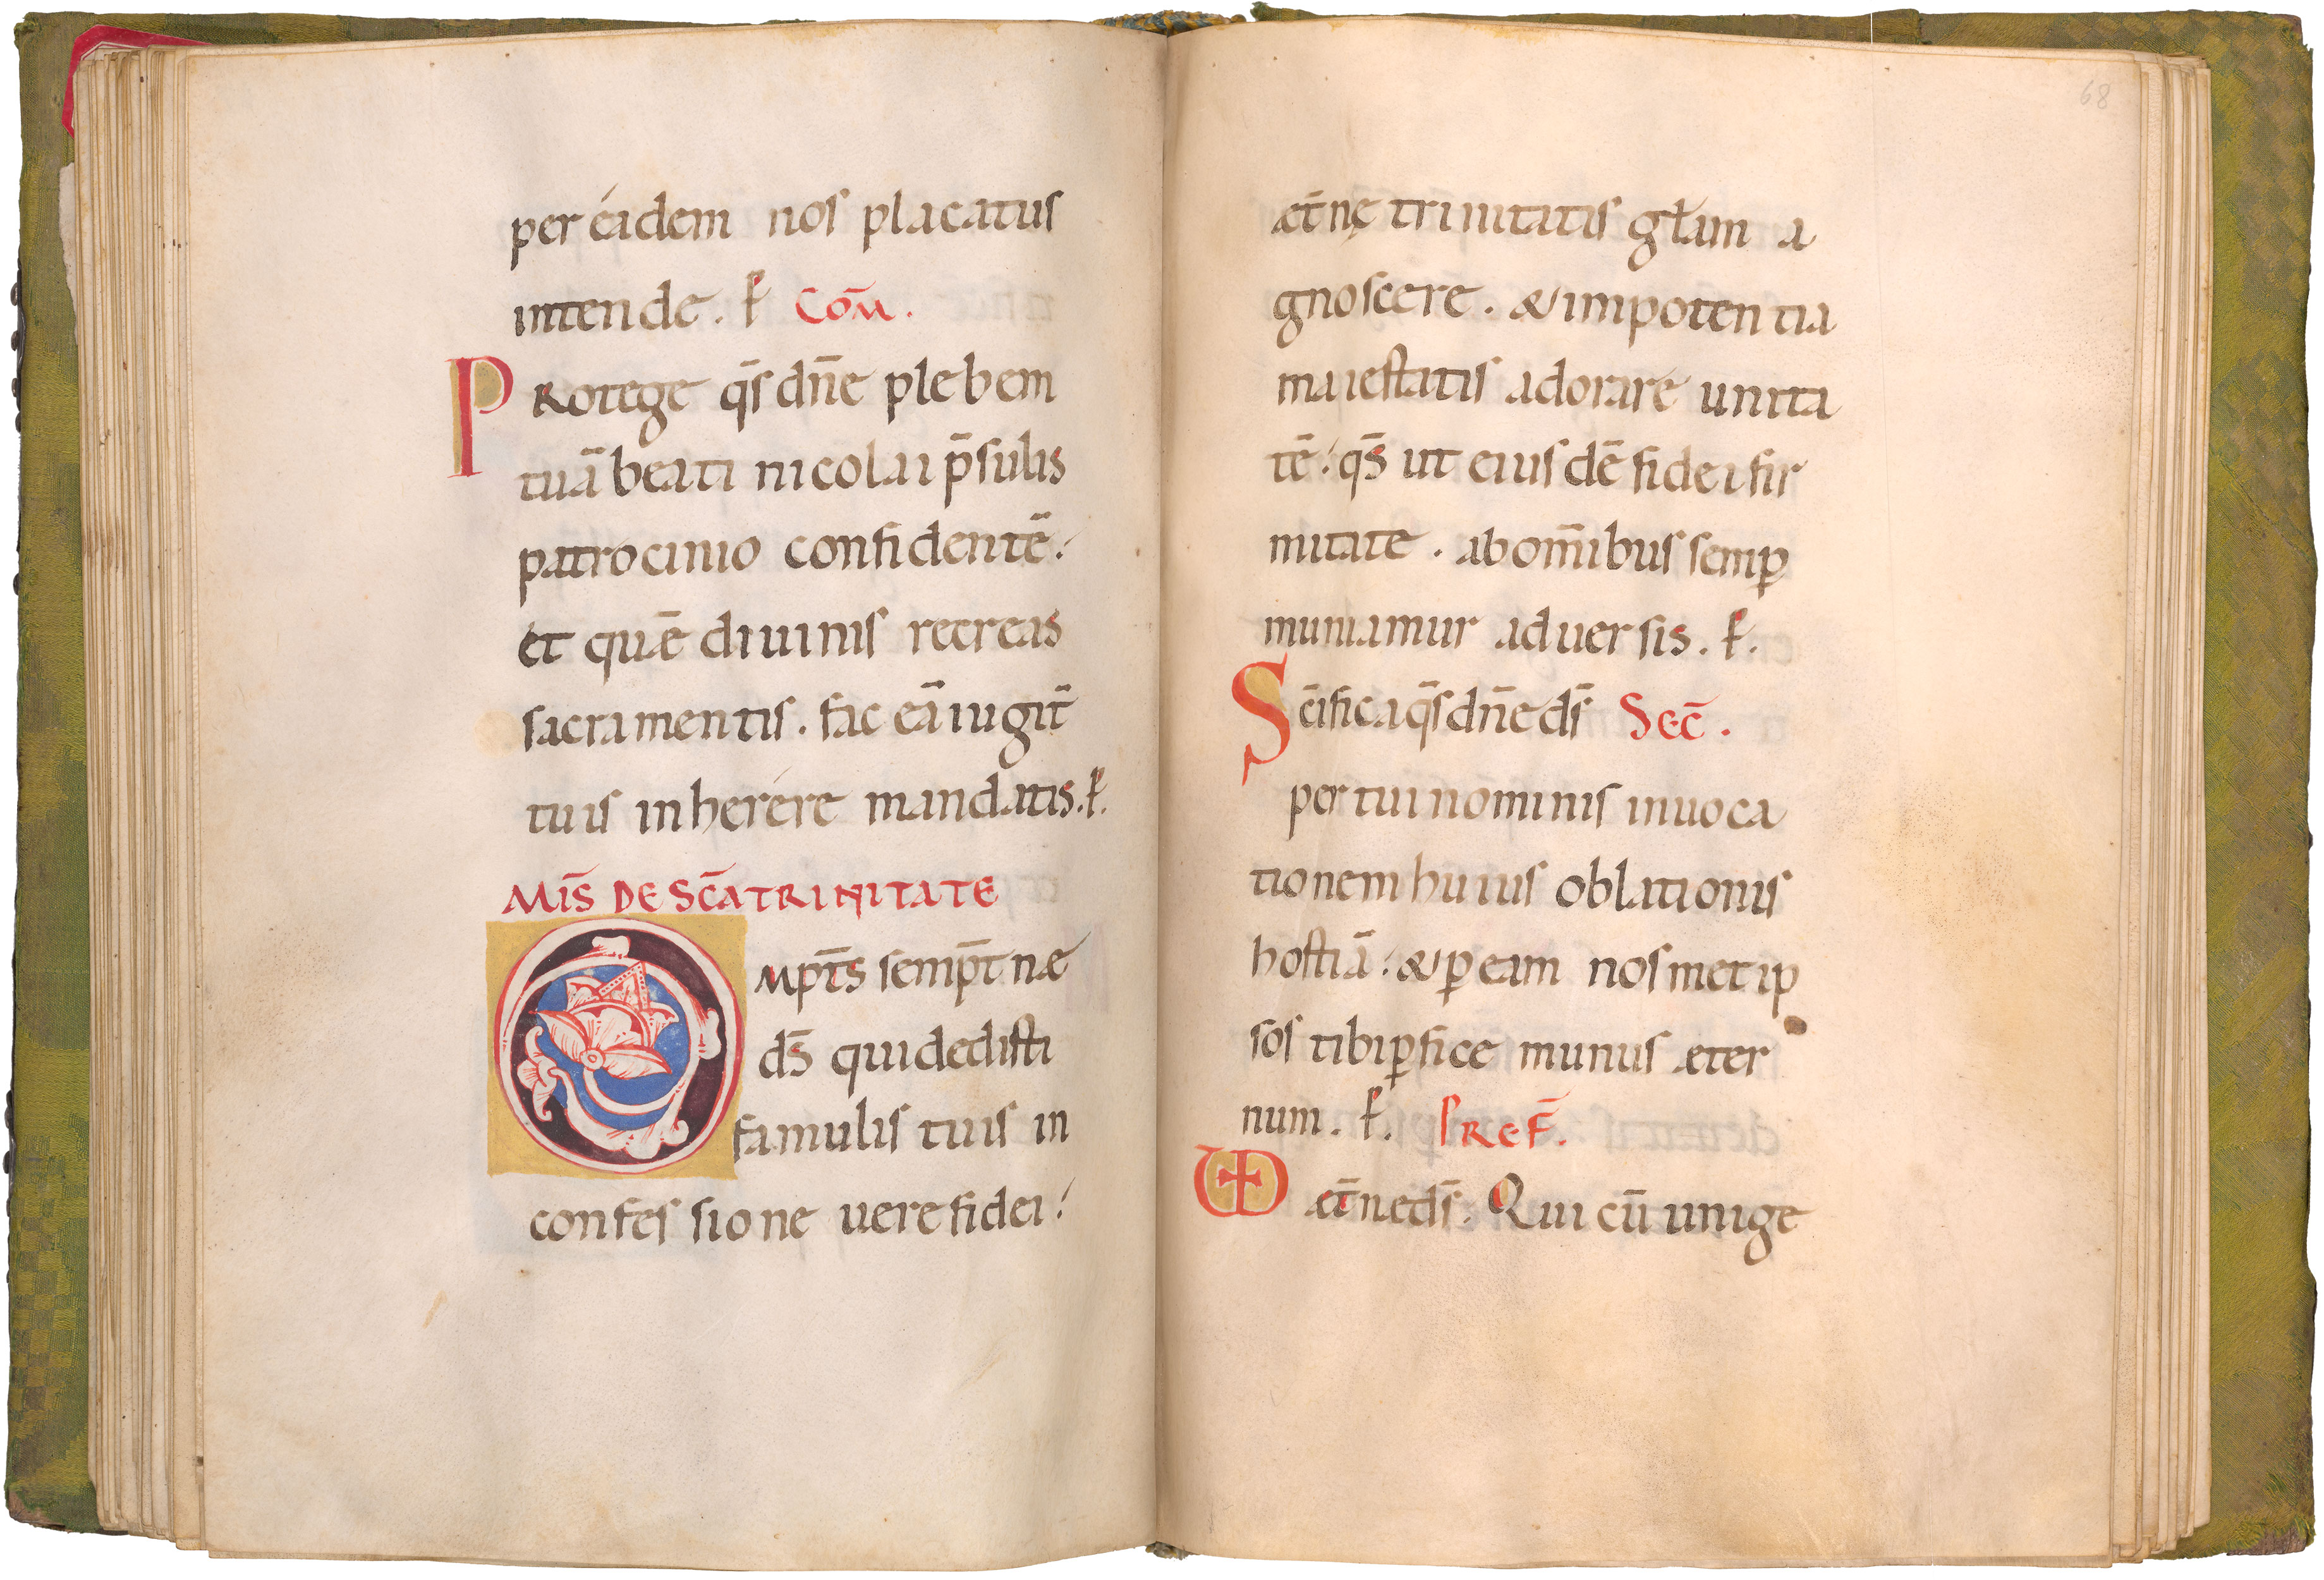 per eādem nos placatus
intende. ꝑ Com̄.
PRotege qs̄ dn̄e plebem
tuā beati nicolai p̄sulis
patrocinio confidentē.
et quǣ diuinis recreas
sacramentis. fac eā iugit̄
tuis inherere mandatis. ꝑ.
MIS̄ DE SC̄A TRINITATE
OMPT̄S semp̄t næ
ds̄ qui dedisti
famulis tuis in
confessione uere fidei.
68
æt̄nę trinitatis gl̄am a
gnoscere. & in potentia
maiestatis adorare unita
tē. qs̄ ut eiusdē fidei fir
mitate. ab om̄ibus semꝑ
muniamur aduersis. ꝑ.
Sc̄ifica qs̄ dn̄e ds̄ Sec̄.
per tui nominis inuoca
tionem huius oblationis
hostiā. & ꝑ eam nosmet ip
sos tibi ꝑfice munus æter
num. ꝑ. PREF̄.
VD æt̄ne ds̄. Qui cū unige